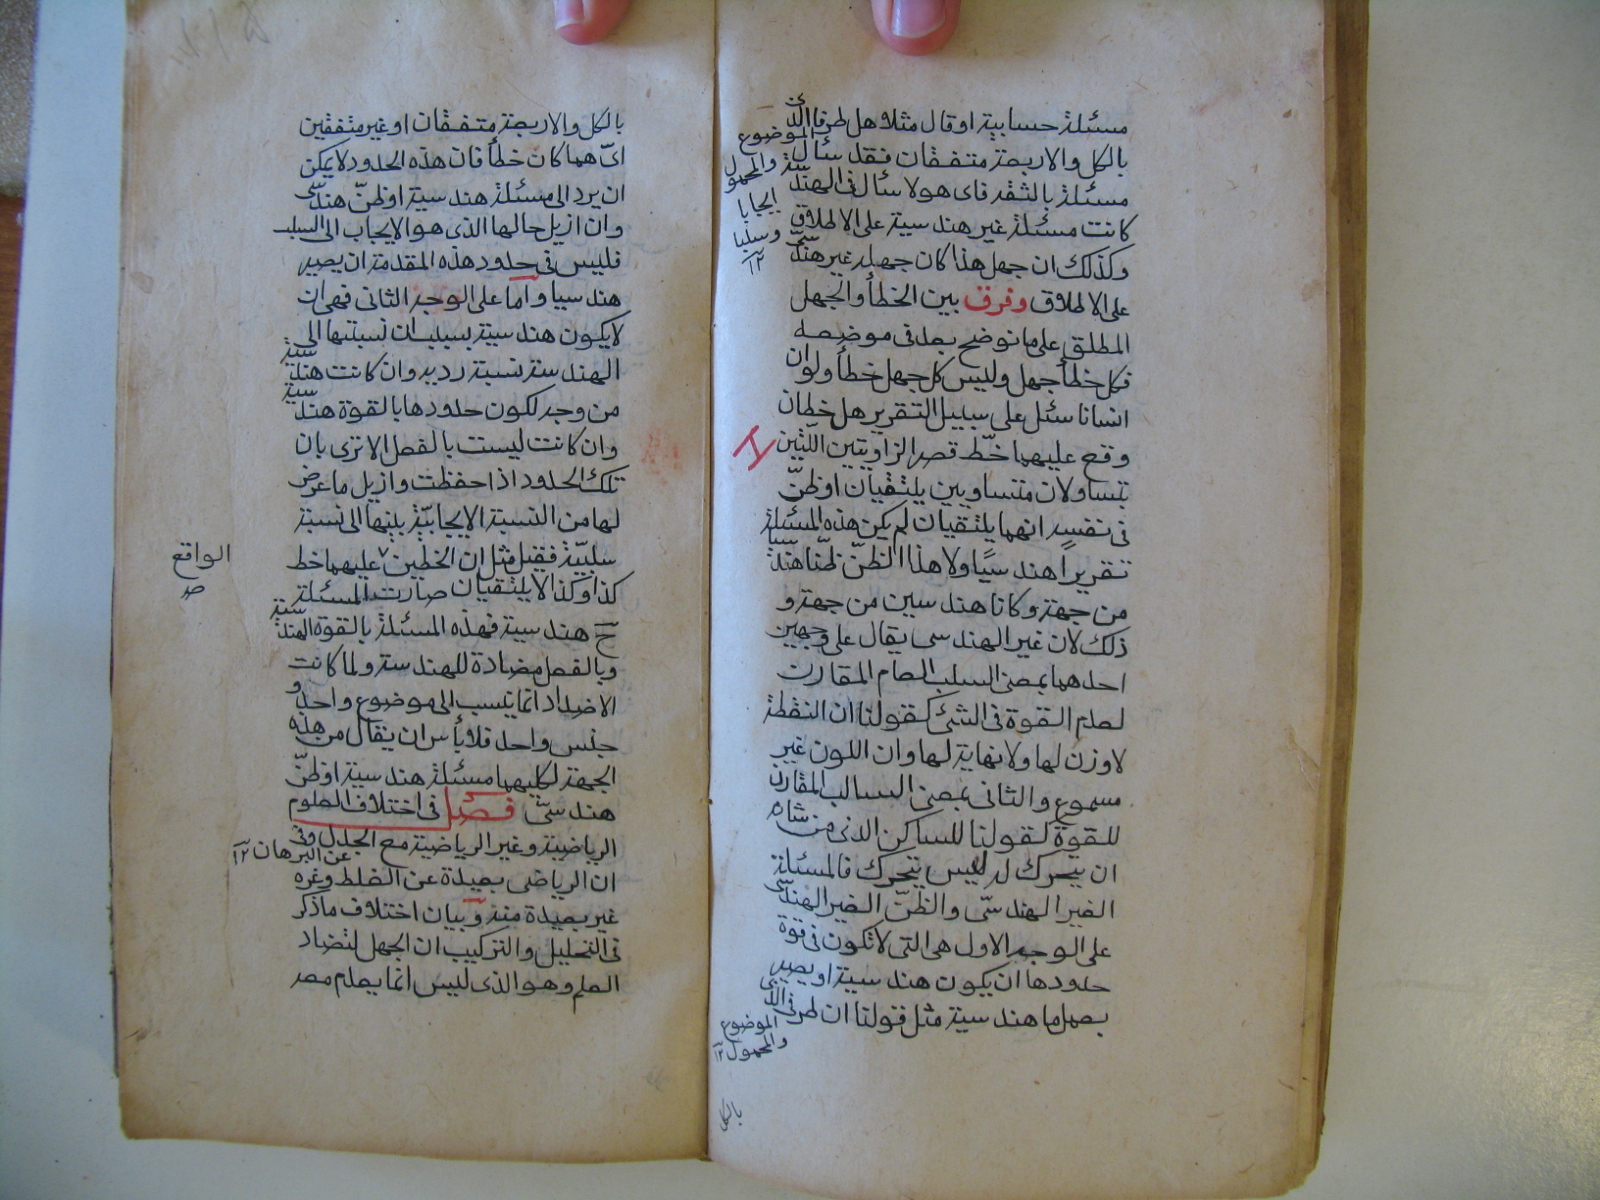 مسئلة حسابية او قال مثلا هل طرفا الذى
بالكل والاربعة متفقان فقد سئال
مسئلة بالثقة فاى هو لا سئال فى الهندسية
كانت مسئلة غير هندسية على الاطلاق
وكذلك ان جهل هذا كان جهله غير هندسى
على الاطلاق وفرق بين الخطأ والجهل
المطلق على ما نوضح بعد فى موضعه
فكل خطأ جهل وليس كل جهل خطأ ولو ان
انسانا سئل على سبيل التقرير هل خطان
وقع عليهما خط قصر الزاويتين اللتين
تتساولان متساويين يلتقيان او ظن
فى نفسه انهما يلتقيان لم يكن هذه المسئلة
تقريراً هندسيًا ولا هذا الظنّ ظنّا هندسيا
من جهة وكانا هندسين من جهة و
ذلك لان غير الهندسى يقال على وجهين
احدهما بمعنى السلب العام المقارن
لعدم القوة فى الشئ كقولنا ان النقطة
لا وزن لها ولا نهاية لها وان اللون غير
مسموع والثانى بمعنى السالب المقارن
للقوة كقولنا للساكن الذى من شانه
ان يتحرك انه ليس يتحرك فالمسئلة
الغير الهندسّى والظنّ الغير الهندسّى
على الوجه الاول هى التى لا تكون فى قوة
حدودها ان يكون هندسية او يصير
بعمل ما هندسية مثل قولنا ان طرفى الذى
الموضوع
والمحمول
ايجابا
وسلبا
١٢
الموضوع
والمحمول ١٢
بالكل
بالكل والاربعة متفقان او غير متفقين
اىّ هما كان خطأ فان هذه الحدود لا يمكن
ان يرد الى مسئلة هندسية او ظنّ هندسىّ
وان ازيل حالها الذى هو الايجاب الى السلب
فليس فى حدود هذه المقدمة ان يصير
هندسيا واما على الوجه الثانى فهى ان
لا يكون هندسية بسبب ان نسبتها الى
الهندسة نسبة ردية وان كانت هندسية
من وجه لكون حدودها بالقوة هندسية
وان كانت ليست بالفعل الا ترى بان
تلك الحدود اذا حفظت وازيل ما عرض
لها من النسبة الايجابيّة بينها الى نسبة
سلبيّة فقيل مثل ان الخطين ٧ عليهما خط
كذا وكذا لا يلتقيان صارت المسئلة
ح هندسية فهذه المسئلة بالقوة الهندسية
وبالفعل مضادة للهندسة ولما كانت
الاضداد انما ينسب الى موضوع واحد و
جنس واحد فلا بأس ان يقال من هذه
الجهة لكليهما مسئلة هندسية او ظنّ
هندسىّ فصل فى اختلاف العلوم
الرياضية وغير الرياضية مع الجدل وفى
ان الرياضى بعيدة عن الغلط وغيره
غير بعيدة منه وبيان اختلاف ما ذكر
فى التحليل والتركيب ان الجهل لتضاد
العلم وهو الذى ليس انما يعلم معه
الواقع
صح
عن البرهان ١٢